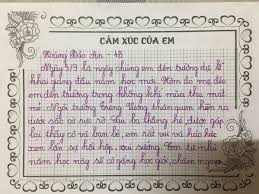 CẢM XÚC CỦA EM
Hoàng Bảo An - 4B
Ngày 5/9 là ngày chúng em đến trường dự lễ
khai giảng đầu năm học mới. Hôm đó mẹ đèo
em đến trường trong không khí mùa thu mát
mẻ. Ngôi trường Trưng Vương thân quen hiện ra
trước mắt có nét rõ. Sau ba tháng hè được gặp
lại thầy cô và bạn bè, em rất vui và háo hức
xen lẫn sự hồi hộp, vui sướng. Em tự nhủ
năm học này sẽ cố gắng học giỏi, chăm ngoan